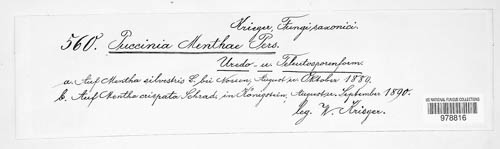 Krieger, Fungi saxonici.
560. Puccinia Menthae Pers.
Uredo- u. Teleutosporenform.
a. Auf Mentha silvestris L. bei Nossen, August u. Oktober 1889.
b. Auf Mentha crispata Schrad. in Königstein, August u. September 1890.
leg. W. Krieger.
US NATIONAL FUNGUS COLLECTIONS
978816